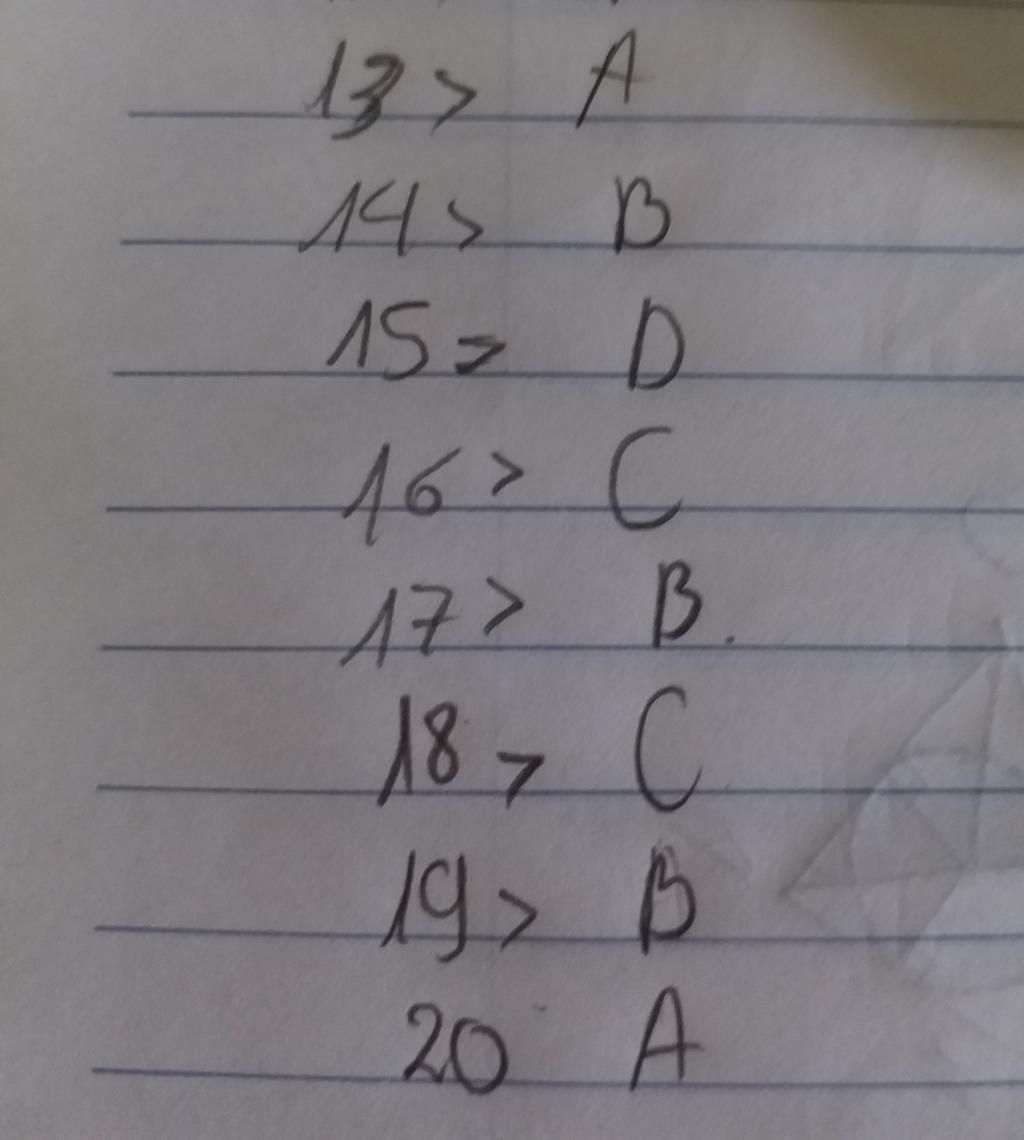 13> A
14> B
15> D
16> C
17> B.
18> C
19> B
20 A